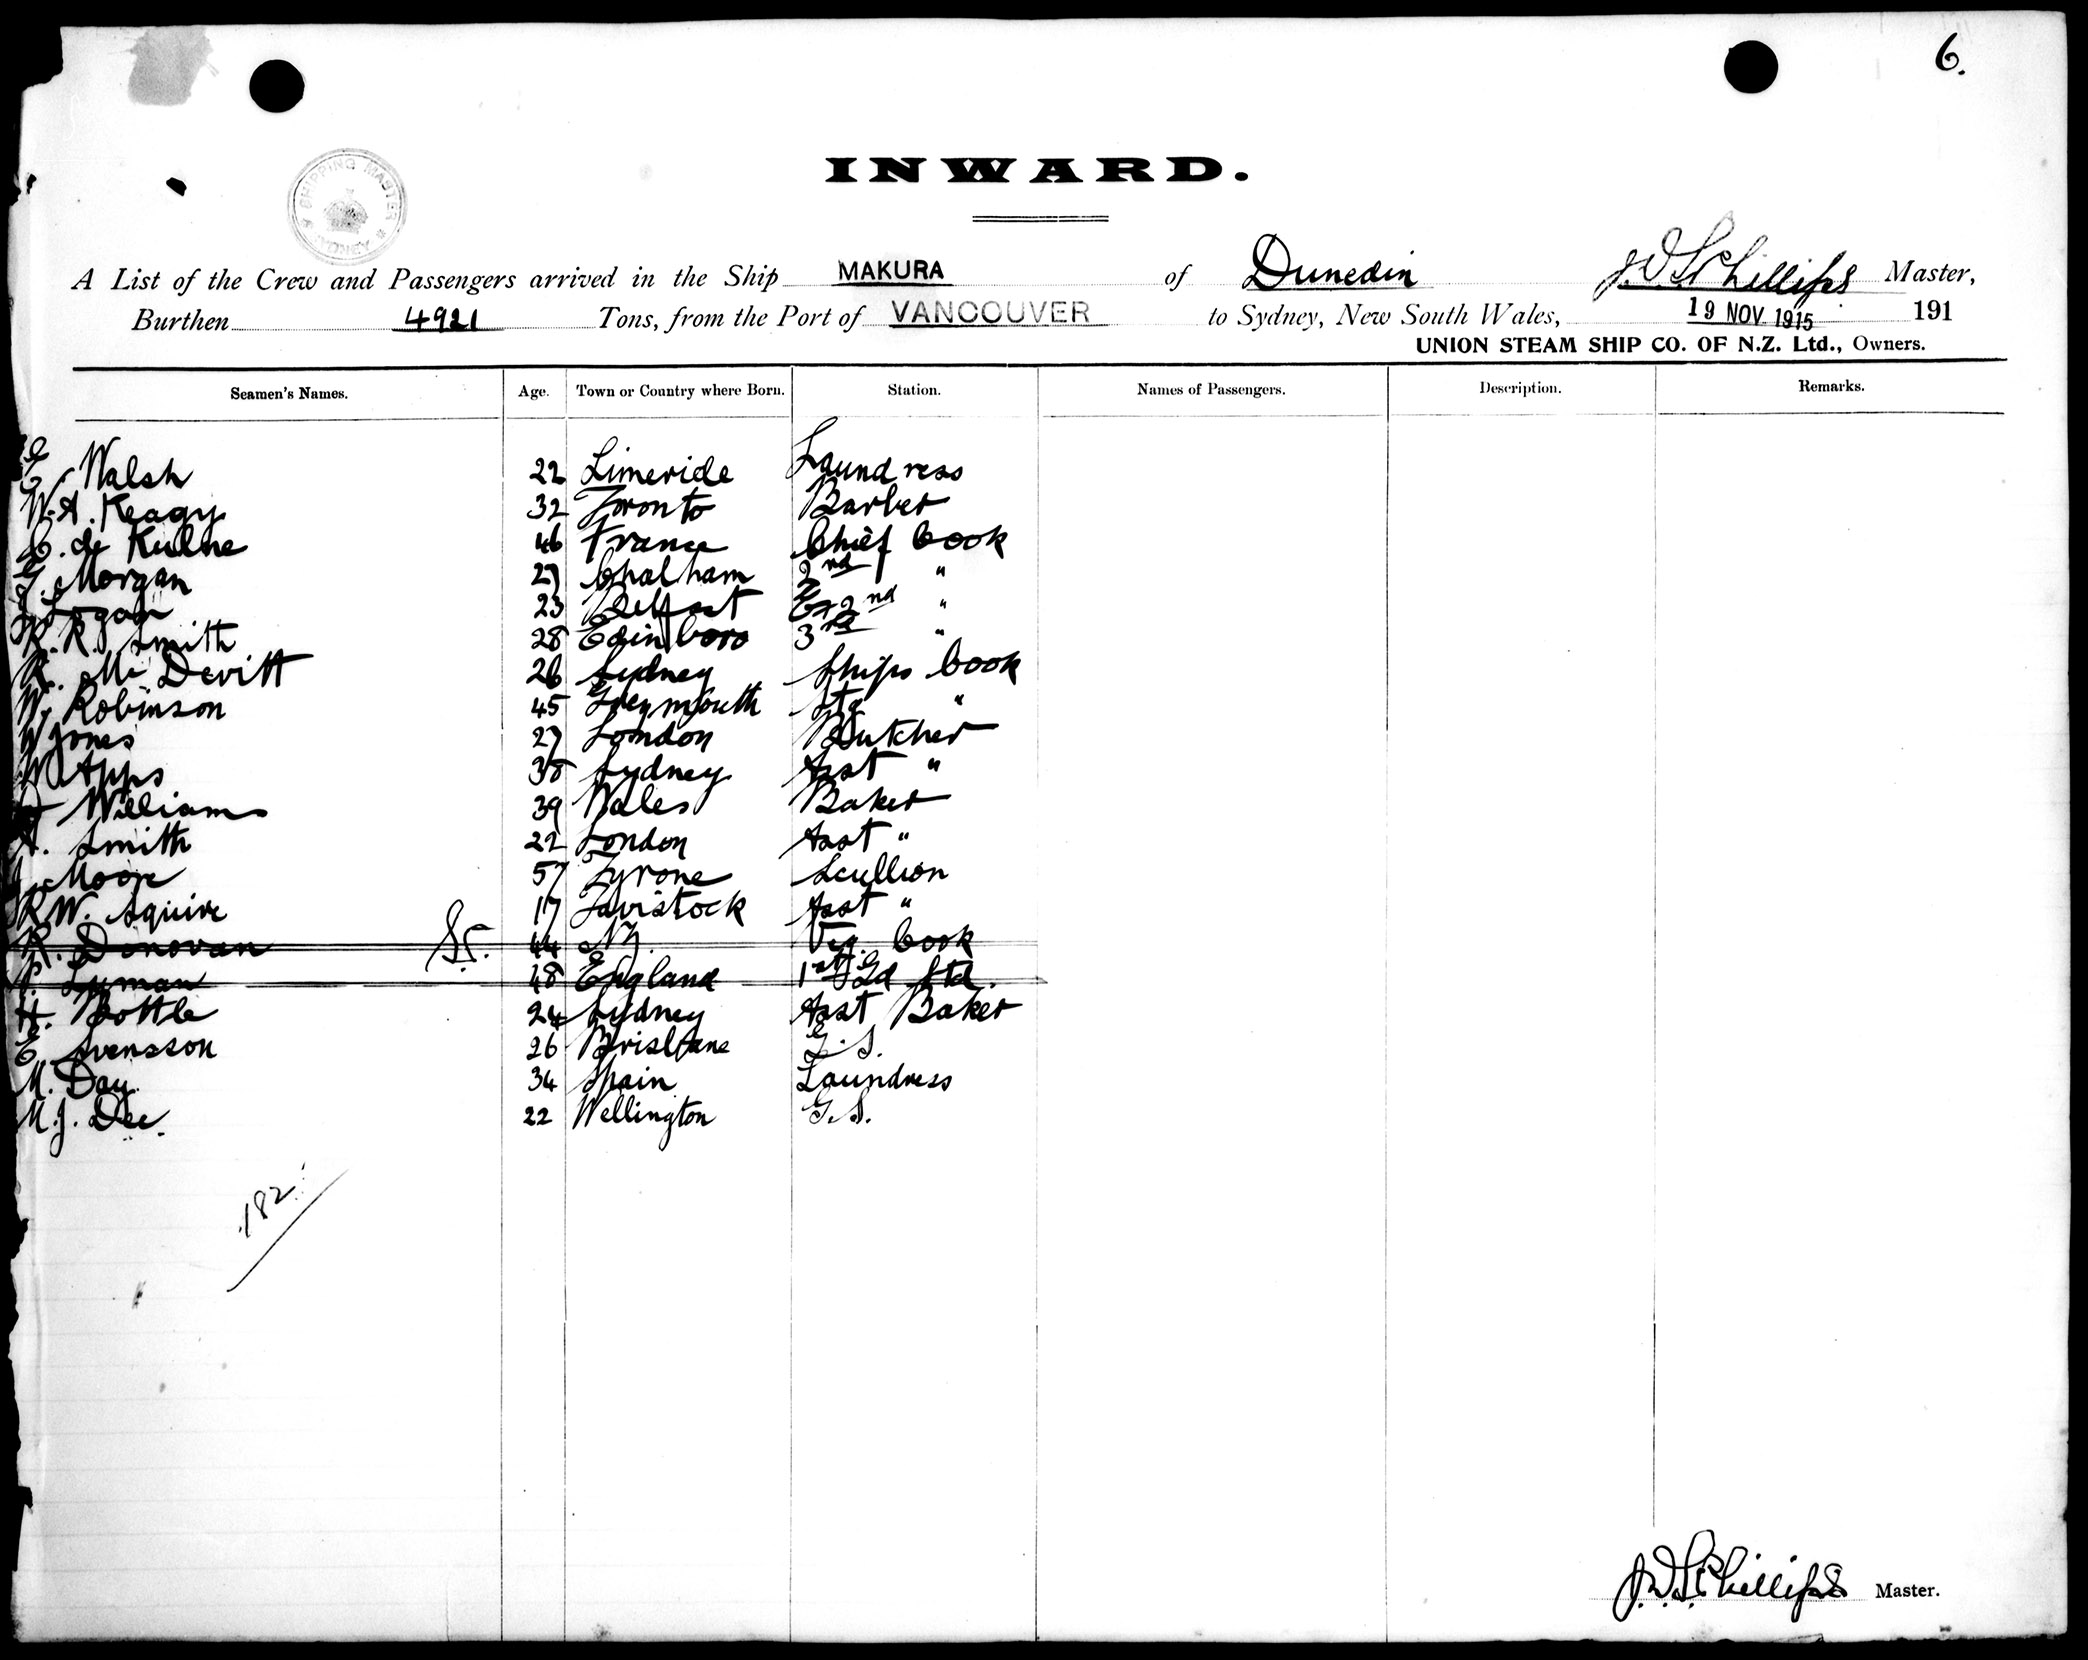 6.
SHIPPING MASTER SYDNEY
INWARD.
A List of the Crew and Passengers arrived in the Ship MAKURA of Dunedin J.D.S. Phillips Master,
Burthen 4921 Tons, from the Port of VANCOUVER to Sydney, New South Wales, 19 NOV 1915 191
UNION STEAM SHIP CO. OF N.Z. Ltd., Owners.
Seamen's Names. Age. Town or Country where Born. Station. Names of Passengers. Description. Remarks.
Walsh 22 Limerick Laundress
W. A. Keagy 32 Toronto Barber
46 France Chief Cook
Morgan 27 Chatham 2nd "
Logan 23 Belfast Ex 2nd "
R. R. Smith 28 Edinboro 3rd "
R. Mc Devitt 26 Sydney Ships Cook
W. Robinson 45 Greymouth "
W Jones 27 London Butcher
W Apps 38 Sydney Asst "
Williams 39 Wales Baker
A. Smith 22 London Asst "
J. Moore 57 Tyrone Scullion
R W. Squire 17 Tavistock Asst "
R. Donovan 44 N Z. Veg. Cook
P. Lyman 48 England 1st Std.
H. Bottle 24 Sydney Asst Baker
E. Svensson 26 Brisbane G. S.
M. Day 34 Spain Laundress
M. J. Dee. 22 Wellington G. S.
182
J.D.S. Phillips Master.